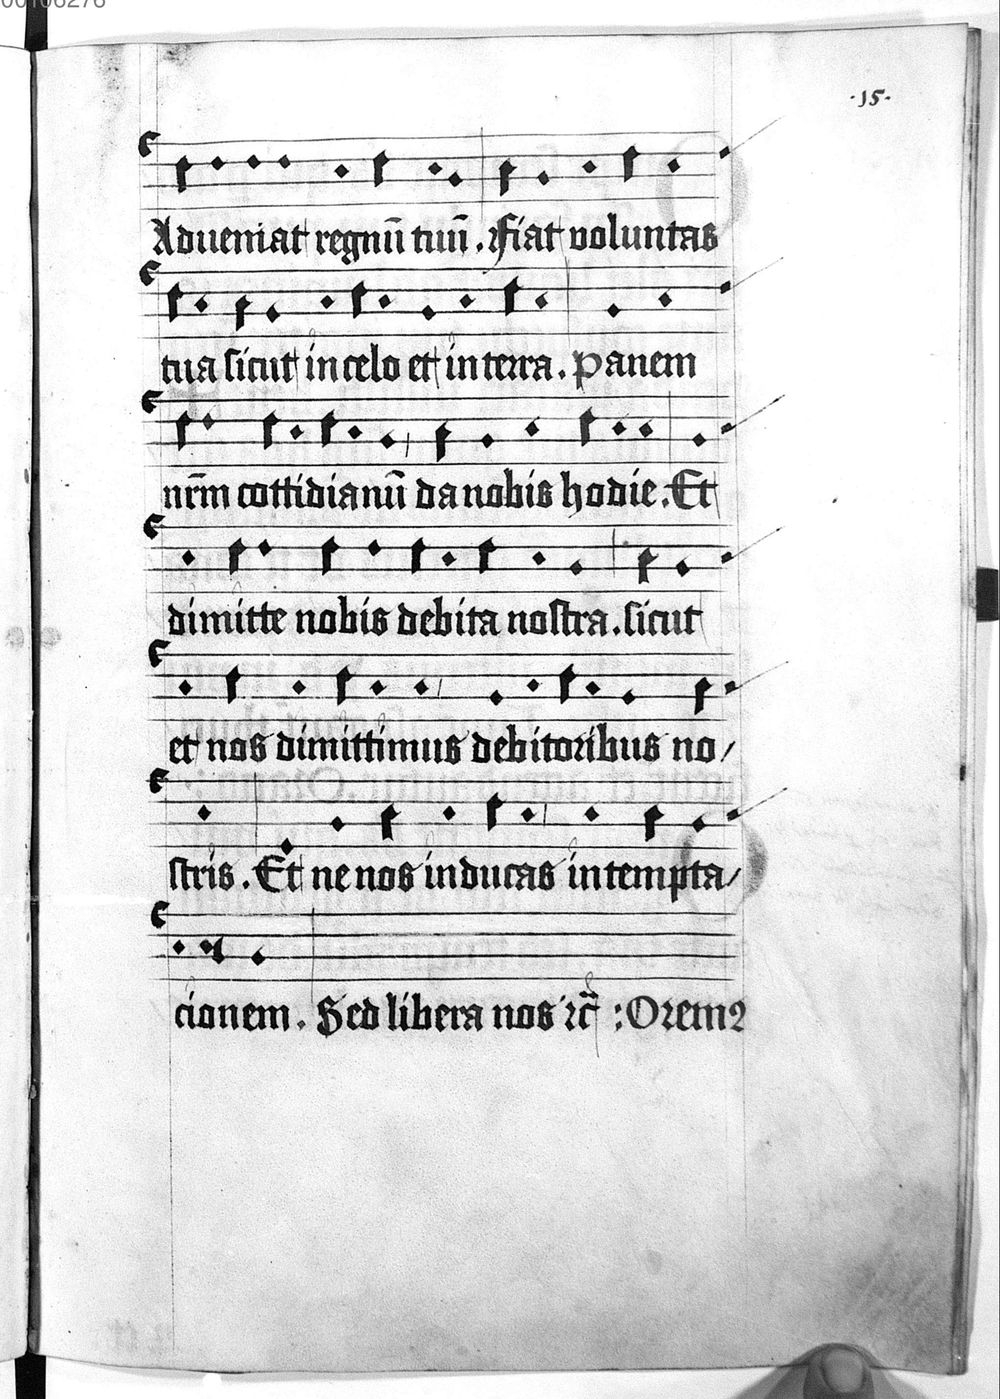 00106276
·15·
Adueniat regnū tuū. Fiat voluntas
tua sicut in celo et in terra. Panem
nr̄m cottidianū da nobis hodie. Et
dimitte nobis debita nostra. sicut
et nos dimittimus debitoribus no/
stris. Et ne nos inducas in tempta/
cionem. Sed libera nos ⁊c̄ :Oremꝰ